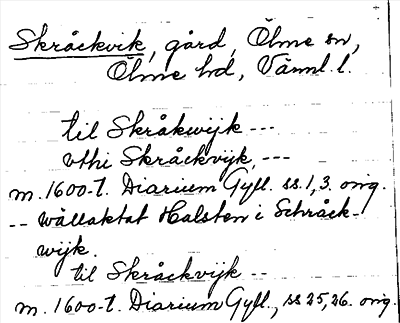 Skråckvik, gård, Ölme sn,
Ölme hd, Värml. l.
til Skråkwijk ---
vthi Skråckvijk, ---
m. 1600-t. Diarium Gyll. ss. 1, 3. orig.
-- wällaktat Halsten i Schråck-
wijk.
til Skråckvijk --
m. 1600-t. Diarium Gyll., ss 25, 26. orig.